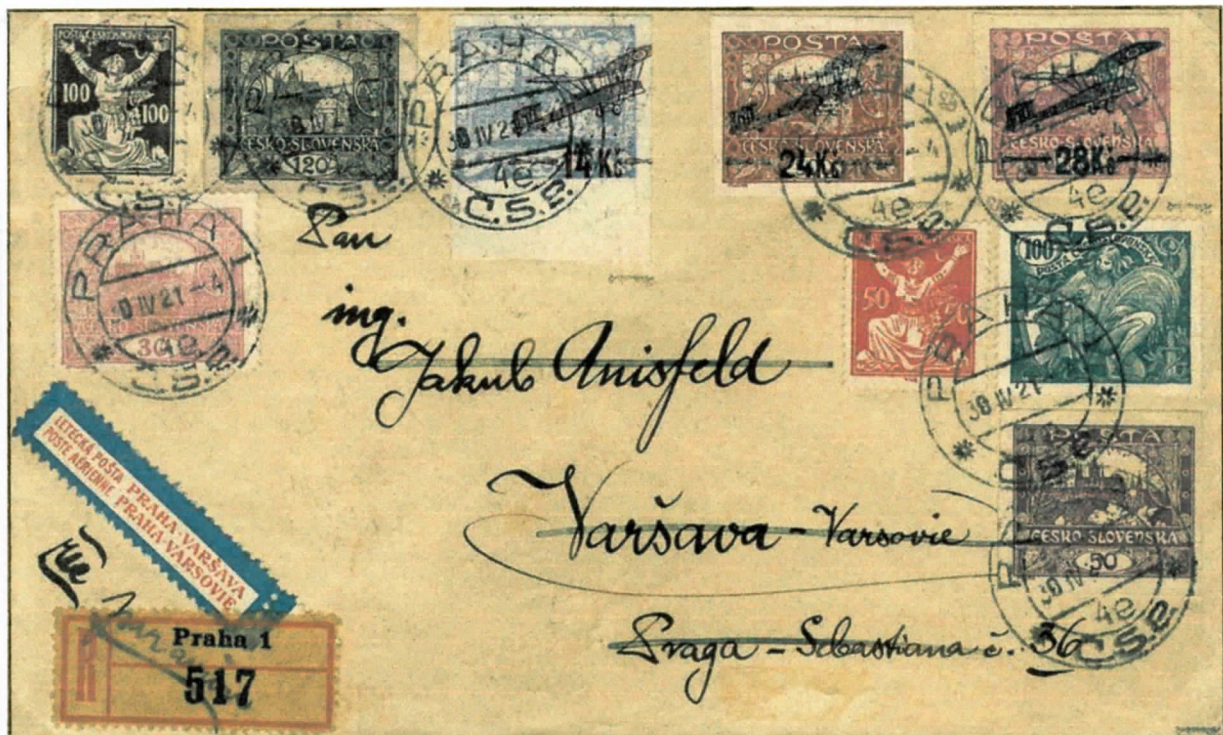 POŠTA ČESKOSLOVENSKÁ
100 100
POŠTA
ČESKO-SLOVENSKÁ
120
PRAHA 1
30 IV 21
4e
Č.S.P.
14 Kč
POŠTA
ČESKO-SLOVENSKÁ
24 Kč
4e
Č.S.P.
POŠTA
ČESKO-SLOVENSKÁ
28 Kč
4e
Č.S.P.
PRAHA 1
30 IV 21 -4
4e
Č.S.P.
30
50
100
PRAHA 1
30 IV 21
POŠTA
ČESKO SLOVENSKÁ
50
30 IV
4e
Č.S.P.
Pan
ing.
Jakub Anisfeld
Varšava - Varsovie
Praga - Sebastiana č. 36
LETECKÁ POŠTA PRAHA-VARŠAVA
POSTE AÉRIENNE PRAHA-VARSOVIE
R
Praha 1
517